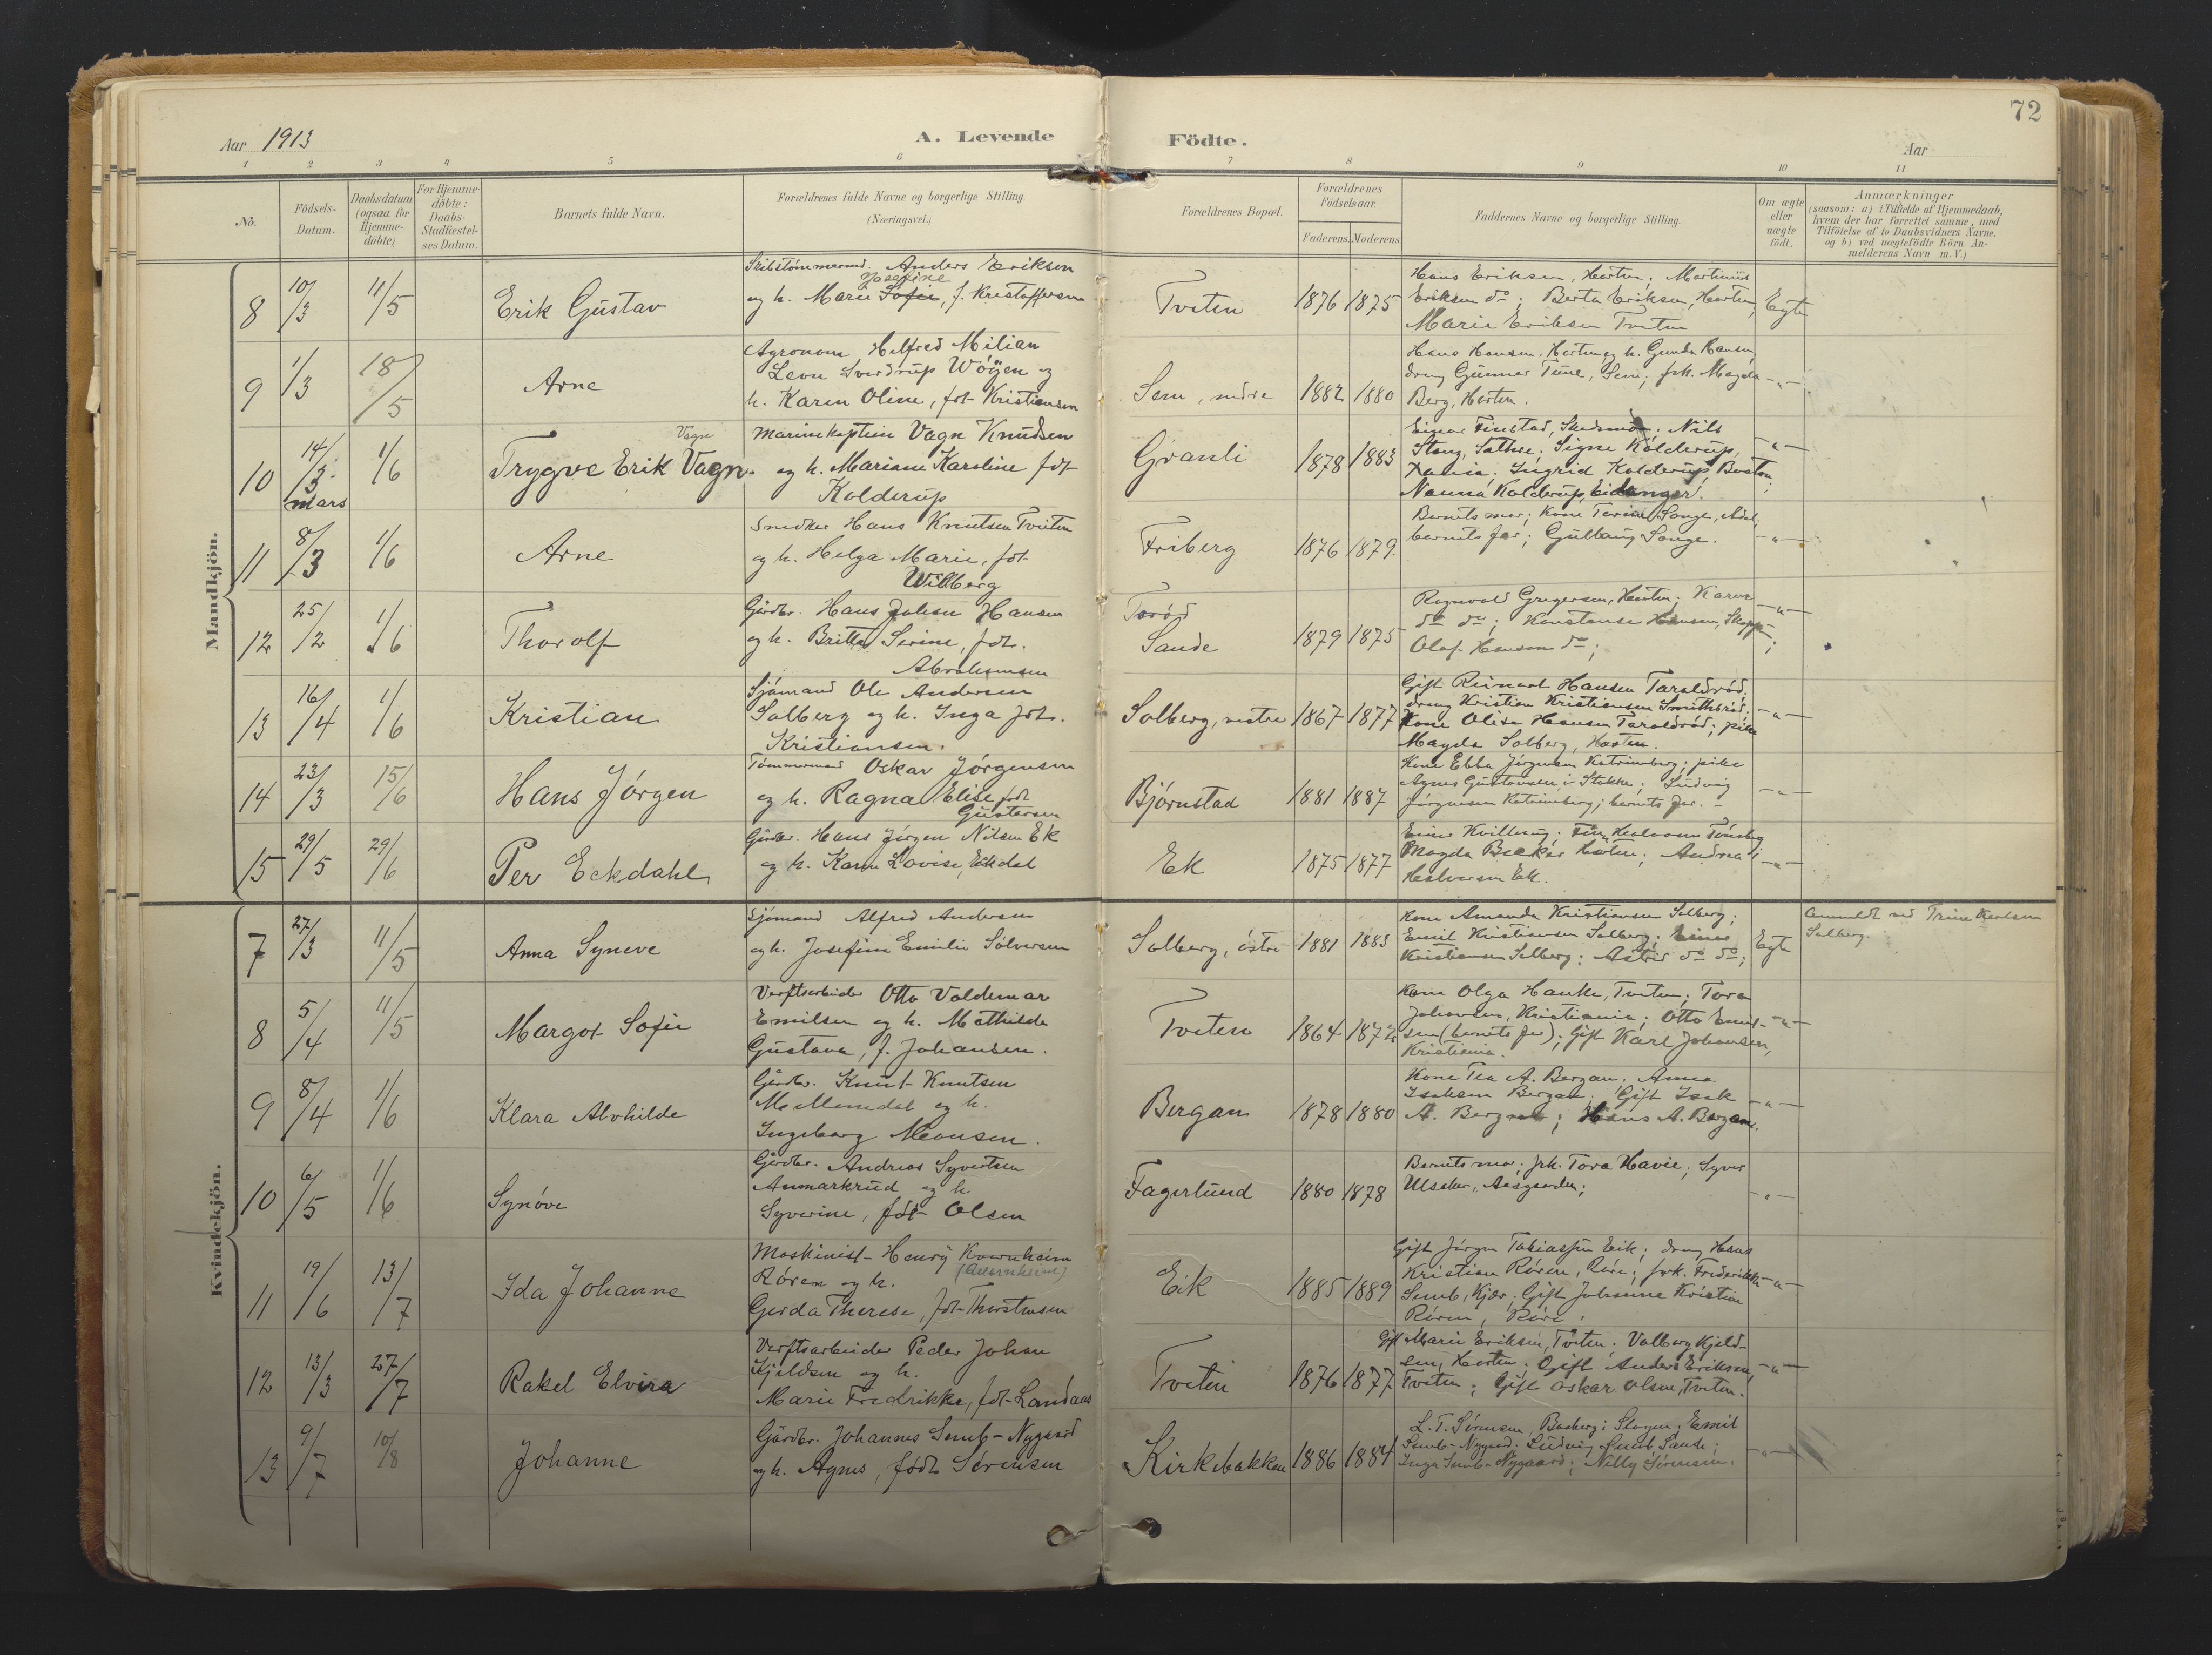 72
Aar 1913
A. Levende Födte.
Aar
1 2 3 4 5 6 7 8 9 10 11
No.
Födsels-
Datum.
Daabsdatum
(ogsaa for
Hjemme-
döbte)
For Hjemme-
döbte:
Daabs-
Stadfæstel-
ses Datum.
Barnets fulde Navn.
Forældrenes fulde Navne og borgerlige Stilling.
(Næringsvei.)
Forældrenes Bopæl.
Forældrenes
Födselsaar.
Faderens. Moderens.
Faddernes Navne og borgerlige Stilling.
Om ægte
eller
uægte
födt.
Anmærkninger
(saasom: a) i Tilfælde af Hjemmedaab,
hvem der har forrettet samme, med
Tilföielse af to Daabsvidners Navne.
og b) ved uægtefödte Börn An-
melderens Navn m.V.)
Mandkjön.
8 10/3 11/5 Erik Gustav
Skibstømmermd. Anders Eriksen
Josefine
og h. Marie Sofie, f. Kristoffersen
Tveten 1876 1875
Hans Eriksen, Horten; Martinius
Eriksen do; Berta Eriksen, Horten;
Marie Eriksen Tveten
Egte
9 1/3 18/5 Arne
Agronom Helfred Milian
Leon Sverdrup Wöyen og
h. Karen Oline, fdt Kristiansen
Sem, nedre 1882 1880
Hans Hansen, Horten og h. Gunda Hansen,
dreng Gunnar Tune, Sem; frk. Magda
Berg, Horten.
-"-
10 14/3 mars 1/6 Trygve Erik Vagn
Vagn
Marinekaptein Vagn Knudsen
og h. Mariane Karoline fdt
Kolderup
Granli 1878 1883
Einar Finstad, Skedsmo; Nils
Stang, Sathre; Signe Kolderup,
Xania; Ingrid Kolderup, Boston;
Nanna Kolderup, Eidanger.
-"-
11 8/3 1/6 Arne
Snedker Hans Knutsen Tveiten
og h. Helga Marie, fdt
Willberg
Friberg 1876 1879
Barnets mor; Kone Terine Sange,
barnets far; Gulbaug Sange.
-"-
12 25/2 1/6 Thorolf
Gårdbr. Hans Julius Hansen
og h. Britte Serine, fdt.
Abrahamsen
Torød
Sande 1879 1875
Ragnvald Gregersen, Horten; Karen
do do; Konstanse Hansen,
Olaf Hansen do;
-"-
13 16/4 1/6 Kristian
Sjömand Ole Andersen
Solberg og h. Inga fdt.
Kristiansen.
Solberg, vestre 1867 1877
Gift Reinart Hansen Taraldrød;
dreng Kristian Kristiansen Smithsrød;
Kone Olise Hansen Taraldrød; pike
Magda Solberg, Horten.
-"-
14 23/3 15/6 Hans Jörgen
Tömmermand Oskar Jörgensen
og h. Ragna Elise fdt
Gustavsen
Björnstad 1881 1887
Kone Ebba Jörgensen Katrineborg; pike
Agnes Gustavsen i Stokke; Ludvig
Jörgensen Katrineborg; barnets far.
-"-
15 29/5 29/6 Per Eckdahl
Gårdbr. Hans Jörgen Nilsen Ek
og h. Karen Lovise, Eckdal
Ek 1875 1877
Einar Kvilhaug; Finn Halvorsen Tönsberg
Magda Becker Horten; Andrea
Halvorsen Ek.
-"-
Kvindekjön.
7 27/3 11/5 Anna Syneve
Sjömand Alfred Andersen
og h. Josefine Emilie Solversen
Solberg, östre 1881 1883
Kone Amanda Kristiansen Solberg;
Emil Kristiansen Solberg; Einar
Kristiansen Solberg; Astrid do do;
Egte
Anmeldt ved Trine Karlsen
Solberg.
8 5/4 11/5 Margot Sofie
Verftsarbeider Otto Valdemar
Emilsen og h. Mathilde
Gustava, f. Johansen.
Tveten 1864 1872
Kone Olga Hanke, Tveten; Tora
Johansen, Kristiania; Otto Emil-
sen (barnets far); Gift Karl Johansen,
Kristiania.
-"-
9 8/4 1/6 Klara Alvhilde
Gårdbr. Knut Knutsen
Mellemdal og h.
Ingeborg Monsen.
Bergan 1878 1880
Kone Tea A. Bergan; Anna
Isaksen Bergan; Gift Isak
A. Bergan; Hans A. Bergan.
-"-
10 6/5 1/6 Synöve
Gårdbr. Andreas Syvertsen
Aumarkrud og h.
Syverine, fdt Olsen
Fagerlund 1880 1878
Barnets mor; frk. Tora Havie; Syver
Ulsaker, Aasgaarden;
-"-
11 19/6 13/7 Ida Johanne
Maskinist Henry Kvernheim
(Auernheim)
Røren og h.
Gerda Therese, fdt Thorstensen
Eik 1885 1889
Gift Jörgen Tobiassen Eik; dreng Hans
Kristian Rören, Röre; frk. Frederikke
Semb, Kjær; Gift Johanne Kristine
Rören, Röre.
-"-
12 13/3 27/7 Rakel Elvira
Verftsarbeider Peder Johan
Kjeldsen og h.
Marie Fredrikke, fdt Landaas
Tveten 1876 1877
Gift Marie Eriksen, Tveten; Valborg Kjeld-
sen, Horten; Gift Anders Eriksen,
Tveten; Gift Oskar Olsen, Tveten.
-"-
13 9/7 10/8 Johanne
Gårdbr. Johannes Semb-Nygaard
og h. Agnes, född Sörensen
Kirkebakken 1886 1884
L. T. Sörensen, Basberg i Slagen; Emil
Semb-Nygaard; Ludvig Semb Sande;
Inga Semb-Nygaard; Nelly Sörensen.
-"-